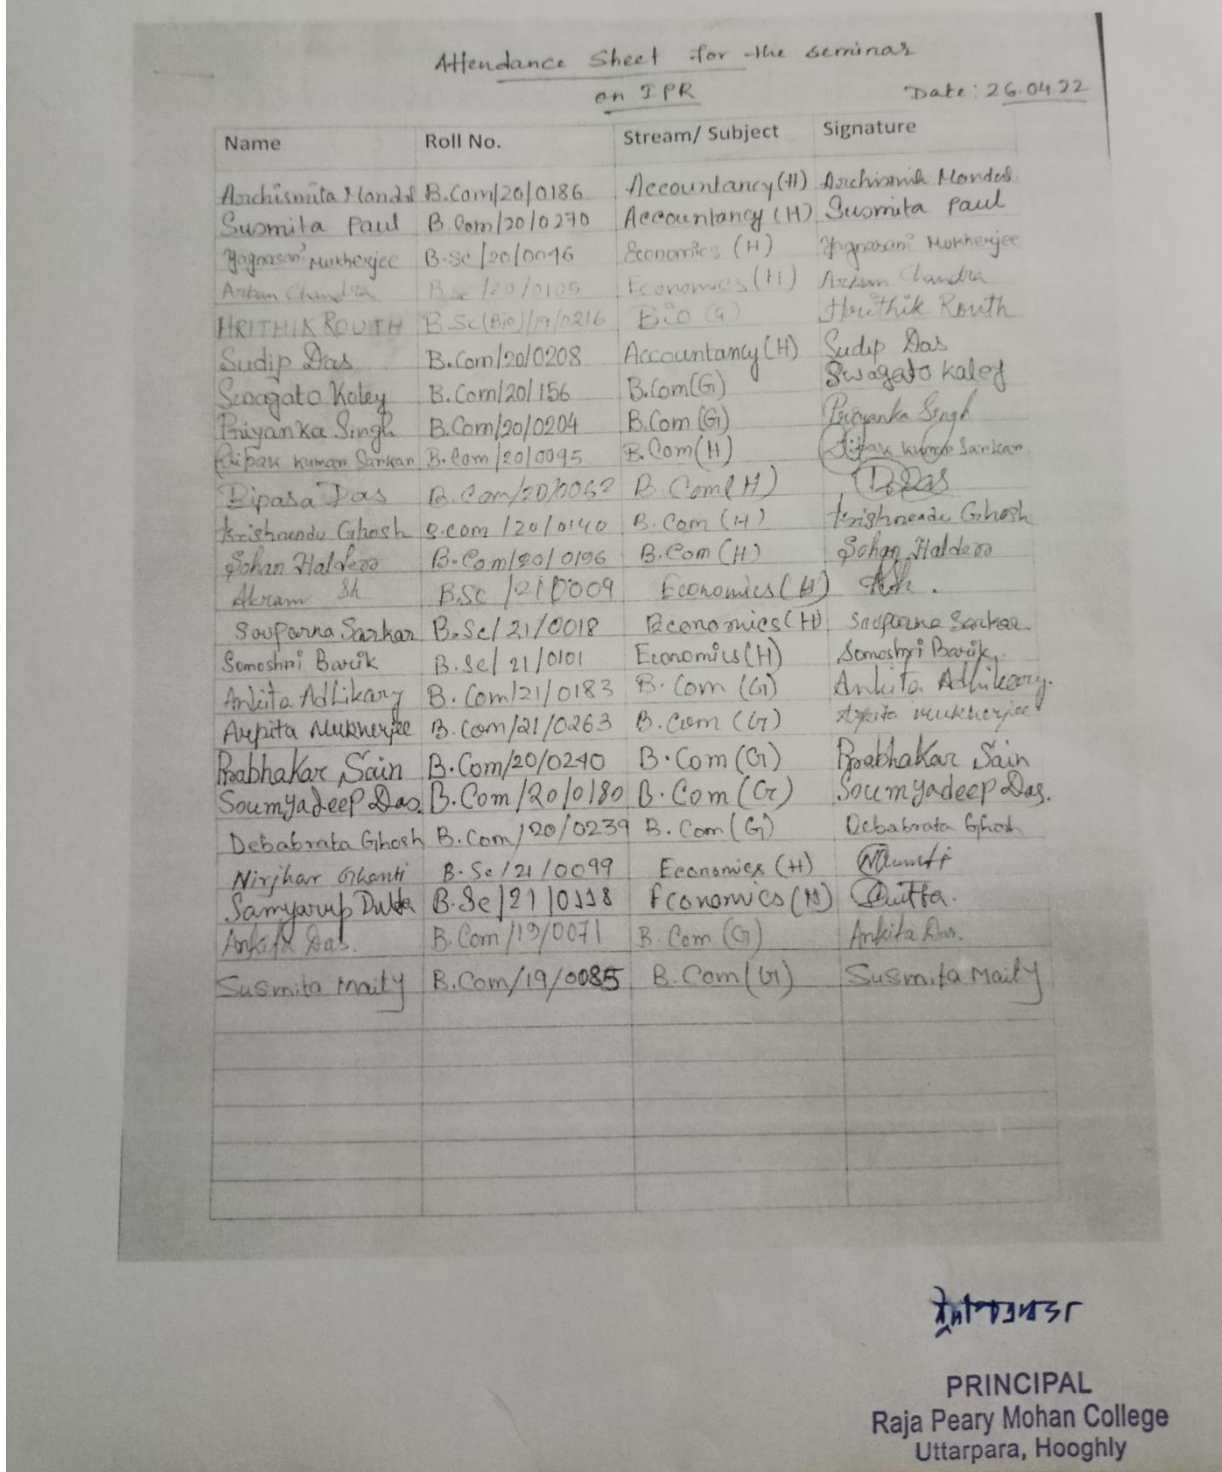 Attendance Sheet for the seminar
on IPR
Date: 26.04.22
Name Roll No. Stream/ Subject Signature
Archismita Mondal B.Com/20/0186 Accountancy(H) Archismita Mondal
Susmita Paul B.Com/20/0270 Accountancy (H) Susmita Paul
Yagnaseni Mukherjee B.Sc/20/0046 Economics (H) Yagnaseni Mukherjee
Chandra B.Sc/20/0109 Economics (H) Chandra
HRITHIK ROUTH B.Sc(Bio)/19/0216 Bio (G) Hrithik Routh
Sudip Das B.Com/20/0208 Accountancy(H) Sudip Das
Swagato Koley B.Com/20/156 B.Com(G) Swagato Koley
Priyanka Singh B.Com/20/0204 B.Com (G) Priyanka Singh
Dipak Kumar Sarkar B.Com/20/0095 B.Com(H) Dipak Kumar Sarkar
Bipasa Das B.Com/20/0062 B.Com(H) D.Das
Krishnendu Ghosh B.com /20/0140 B.Com (H) Krishnendu Ghosh
Sohan Halder B.Com/20/0196 B.Com (H) Sohan Halder
Akram Sk BSc /21/0009 Economics(H)
Souparna Sarkar B.Sc/21/0018 Economics(H) Souparna Sarkar
Somoshri Barik B.Sc/21/0101 Economics(H) Somoshri Barik
Ankita Adhikary B.Com/21/0183 B.Com (G) Ankita Adhikary.
Arpita Mukherjee B.Com/21/0263 B.Com (G) Arpita Mukherjee
Prabhakar Sain B.Com/20/0240 B.Com(G) Prabhakar Sain
Soumyadeep Das. B.Com/20/0180 B.Com(G) Soumyadeep Das.
Debabrata Ghosh B.Com/20/0239 B.Com(G) Debabrata Ghosh
Nirjhar Ghanti B.Sc/21/0099 Economics (H)
Samyarup Dutta B.Sc/21/0118 Economics(H) Dutta.
Ankita Das. B.Com/19/0071 B.Com (G) Ankita Das.
Susmita Maity B.Com/19/0085 B.Com(G) Susmita Maity
PRINCIPAL
Raja Peary Mohan College
Uttarpara, Hooghly